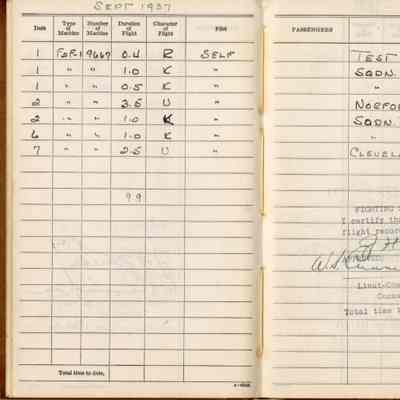 SEPT 1937
Date Type of Machine Number of Machine Duration of Flight Character of Flight Pilot PASSENGERS
1 F2F-1 9667 0.4 R SELF TEST
1 " " 1.0 K " SQDN.
1 " " 0.5 K " "
2 " " 3.5 U " NORFO
2 " " 1.0 K " SQDN.
6 " " 1.0 K " "
7 " " 2.5 U " CLEVELA
9.9
FIGHTING
I certify tha
flight record
Lieut-Com
Comm
Total time t
Total time to date,